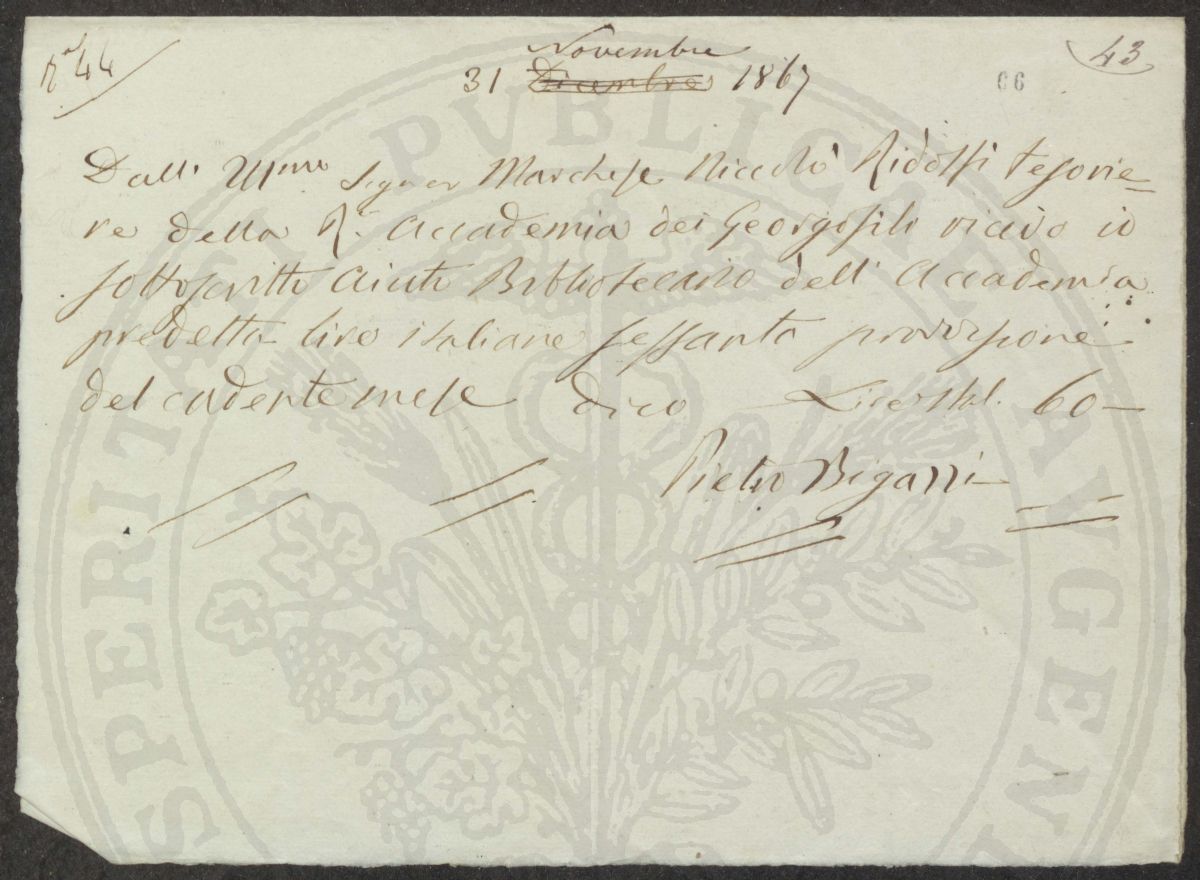 N.° 44
43
66
Novembre
31 Dicembre 1867
Dall' Ill.mo Signor Marchese Niccolò Ridolfi Tesorie=
re della R. Accademia dei Georgofili ricevo io
sottoscritto Aiuto Bibliotecario dell' Accademia
predetta lire italiane sessanta provvisione
del cadente mese dico Lire Ital. 60—
Pietro Bigazzi
PROSPERITATI PVBLICAE AVGENDAE